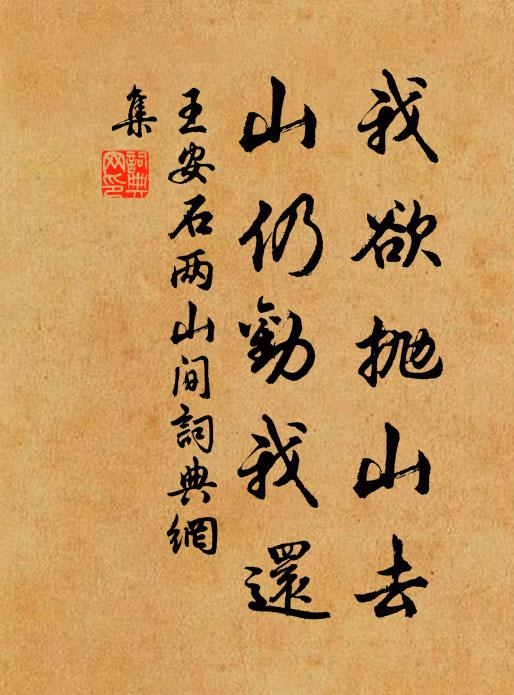 我欲抛山去
山仍勸我還
王安石两山间詞典網
集
詞典
网印